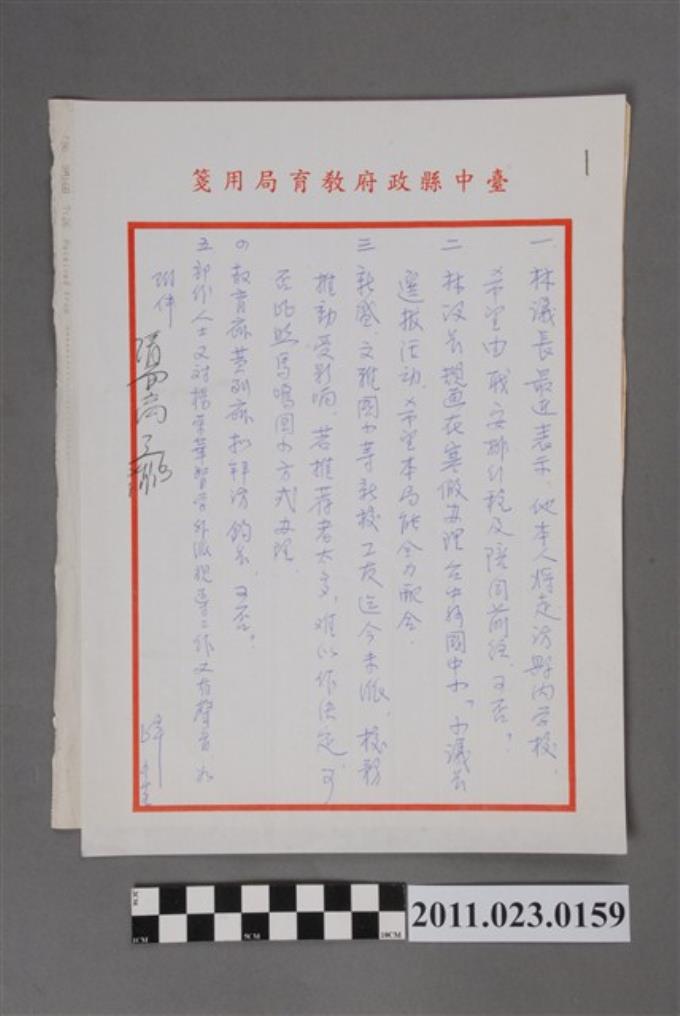 臺中縣政府教育局用箋
一 林議長最近表示,他本人將走訪縣內學校,
希望由職安排行程及陪同前往,可否?
二 林議長想要在寒假辦理台中縣國中小「小議長
選拔活動,希望本局能全力配合.
三 新盛、文雅國小等新校工友迄今未派,校務
推動受影响,若推荐者太多,難以作決定,可
否比照馬鳴國小方式办理.
四 教育廳黃副廳拟拜訪鈞長,可否?
五 部份人士又對楊 督学外派視導工作又有聲音,如
附件
2011.023.0159
1CM
5CM
10CM